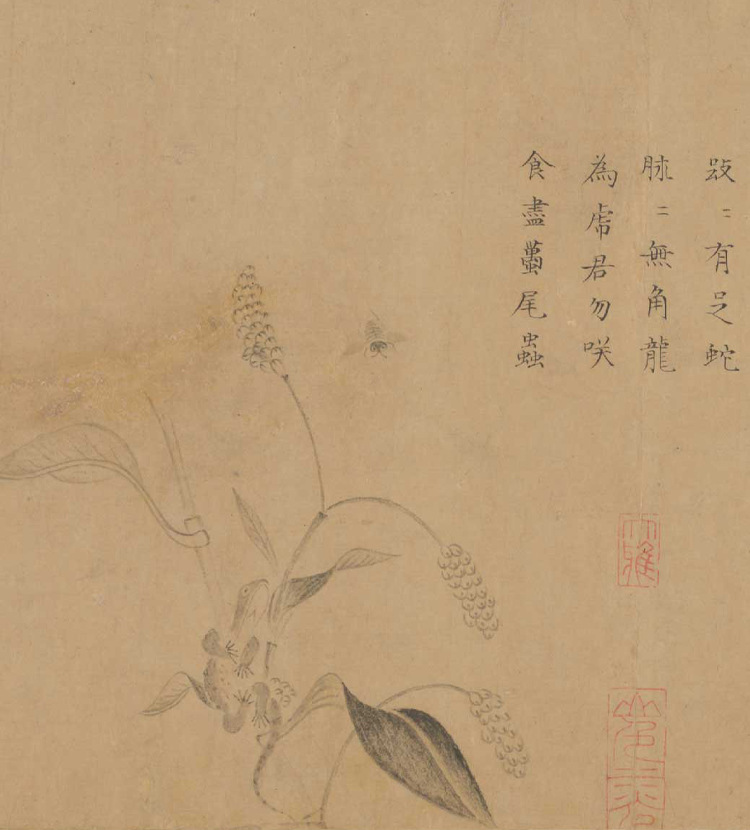 跂〻有足蛇
脉〻無角龍
為虎君勿咲
食盡蠆尾蟲